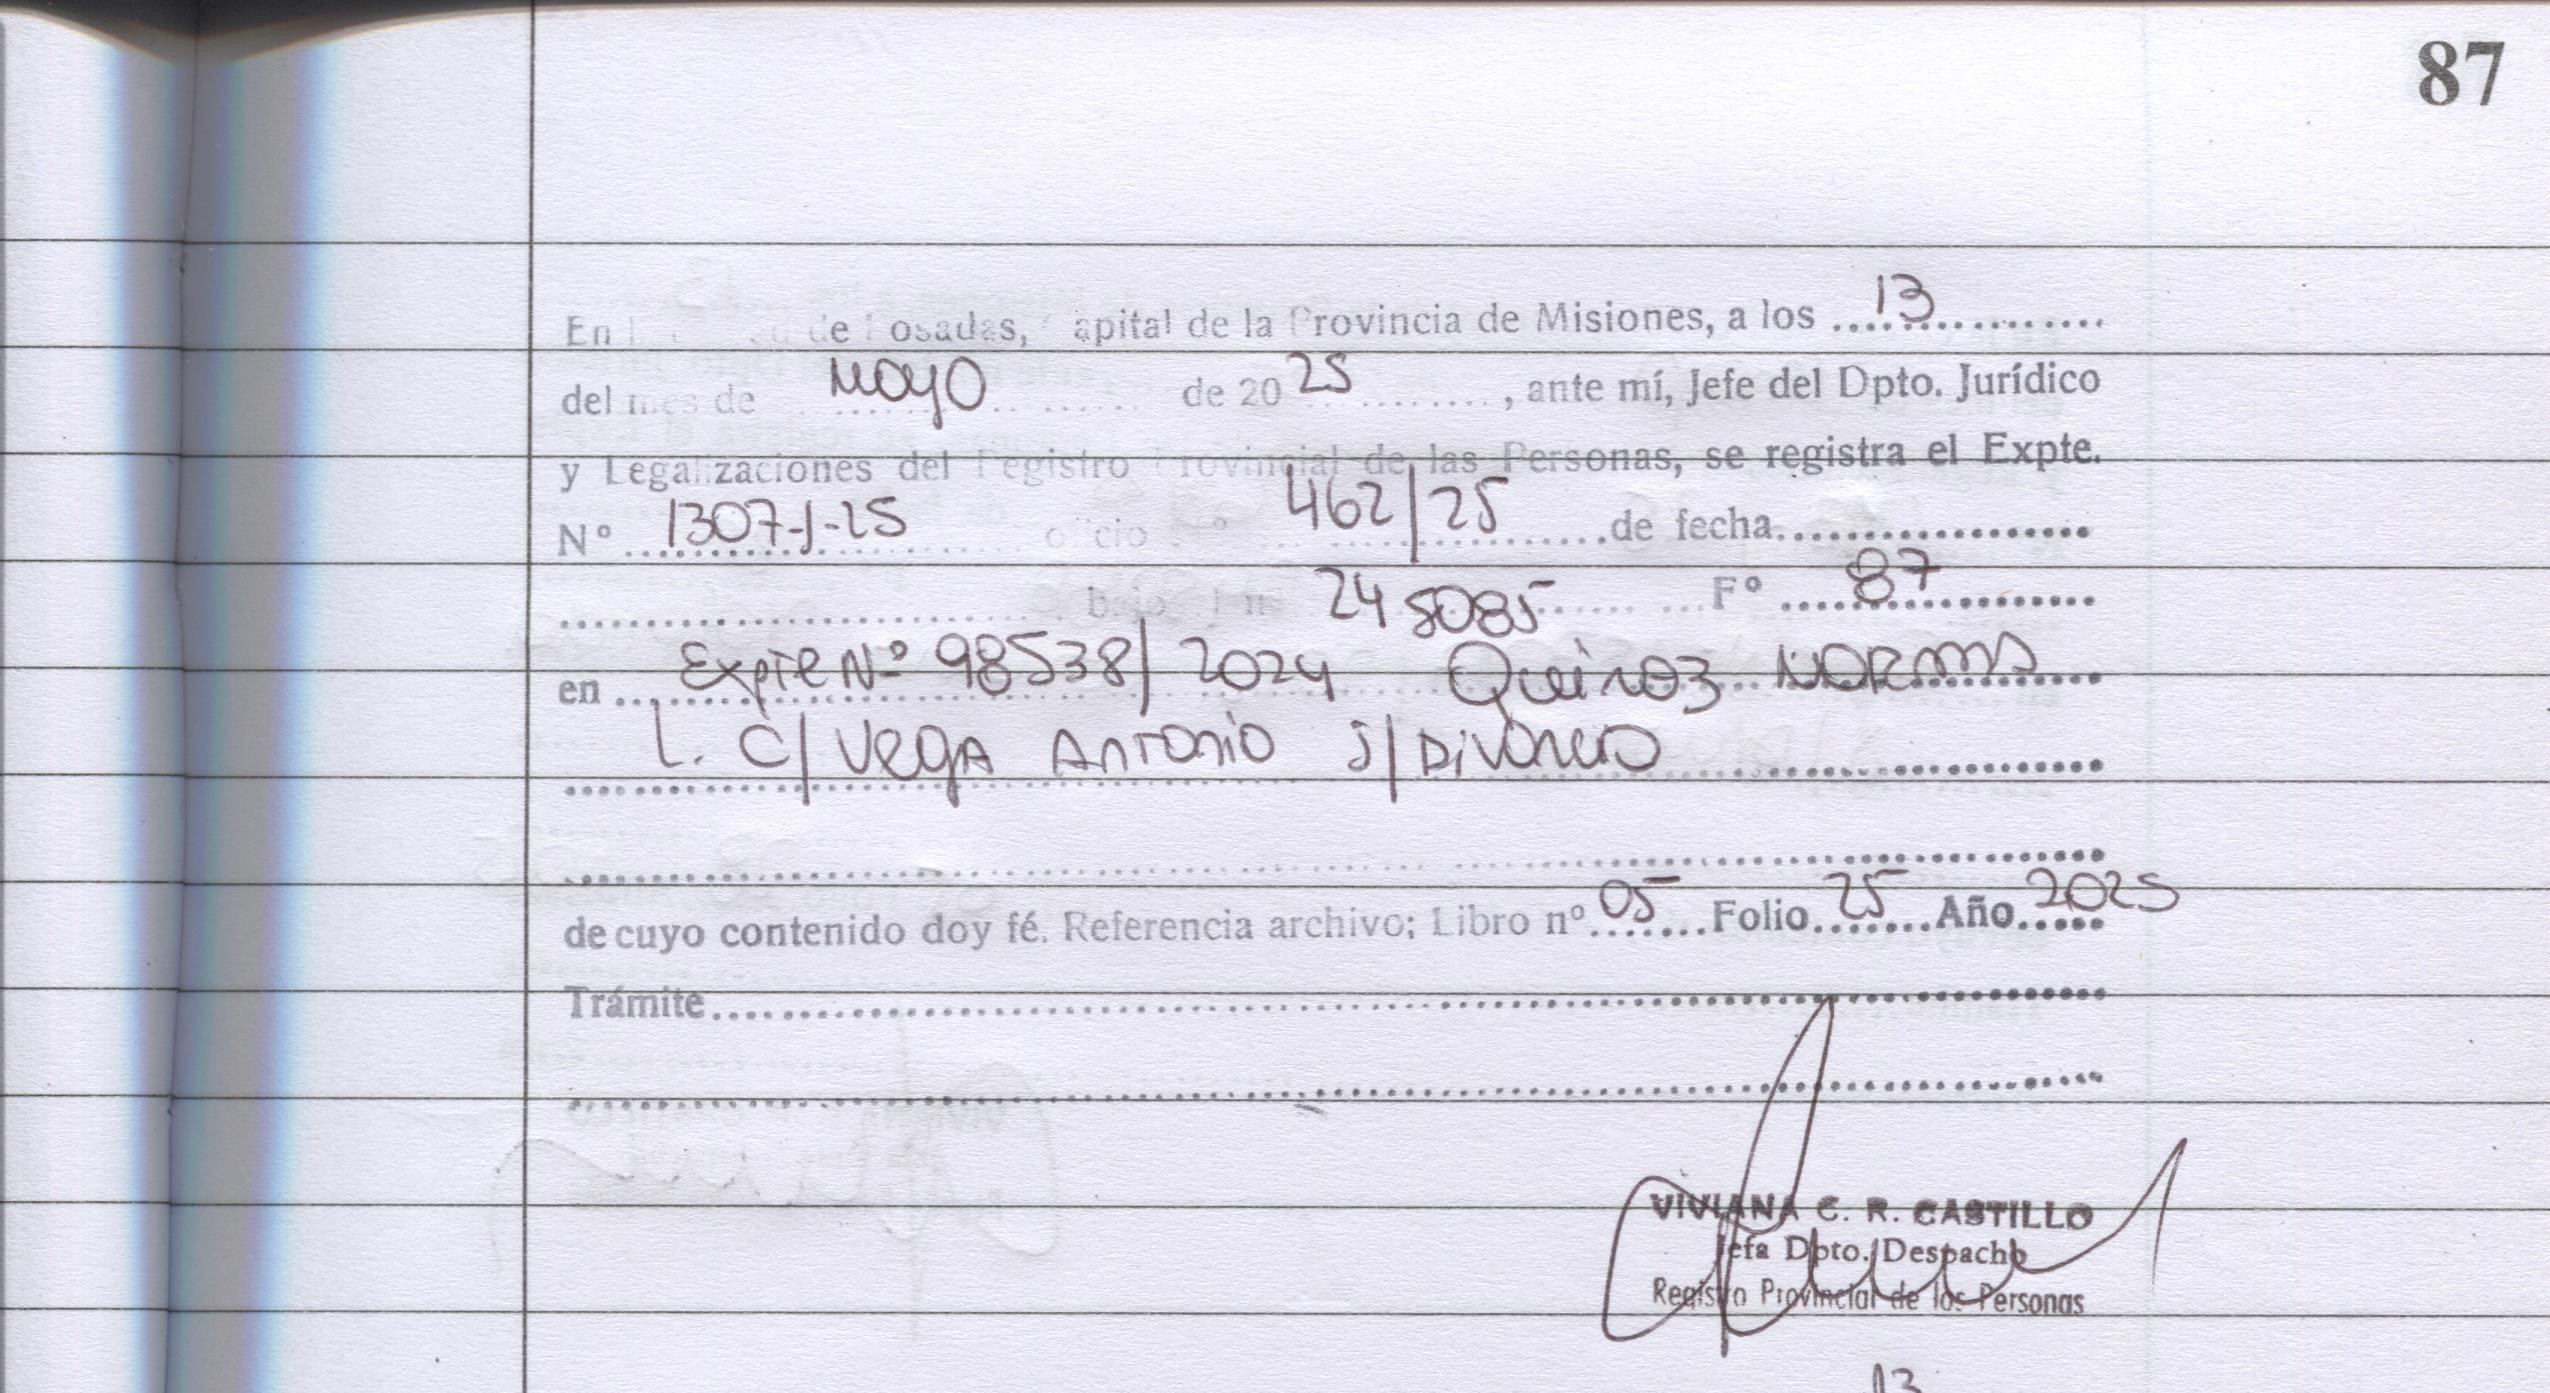 87
En l de Posadas, Capital de la Provincia de Misiones, a los ....13................
del mes de ..mayo.... de 20 25 ........., ante mí, Jefe del Dpto. Jurídico
y Legalizaciones del Registro Provincial de las Personas, se registra el Expte.
Nº ...1307-J-25........ oficio Nº 462/25 ........de fecha..................
........................... bajo 245085 ...... Fº ...87.............
en ...Expte Nº 98538/2024 Queiroz Norma...
L. C/ Vega Antonio S/ Divorcio ..............
..............................................................
de cuyo contenido doy fé. Referencia archivo; Libro nº 05 ....Folio 25 ....Año 2025
Trámite..............................................................
..............................................................
VIVIANA C. R. CASTILLO
Jefa Dpto. Despacho
Registro Provincial de las Personas
13